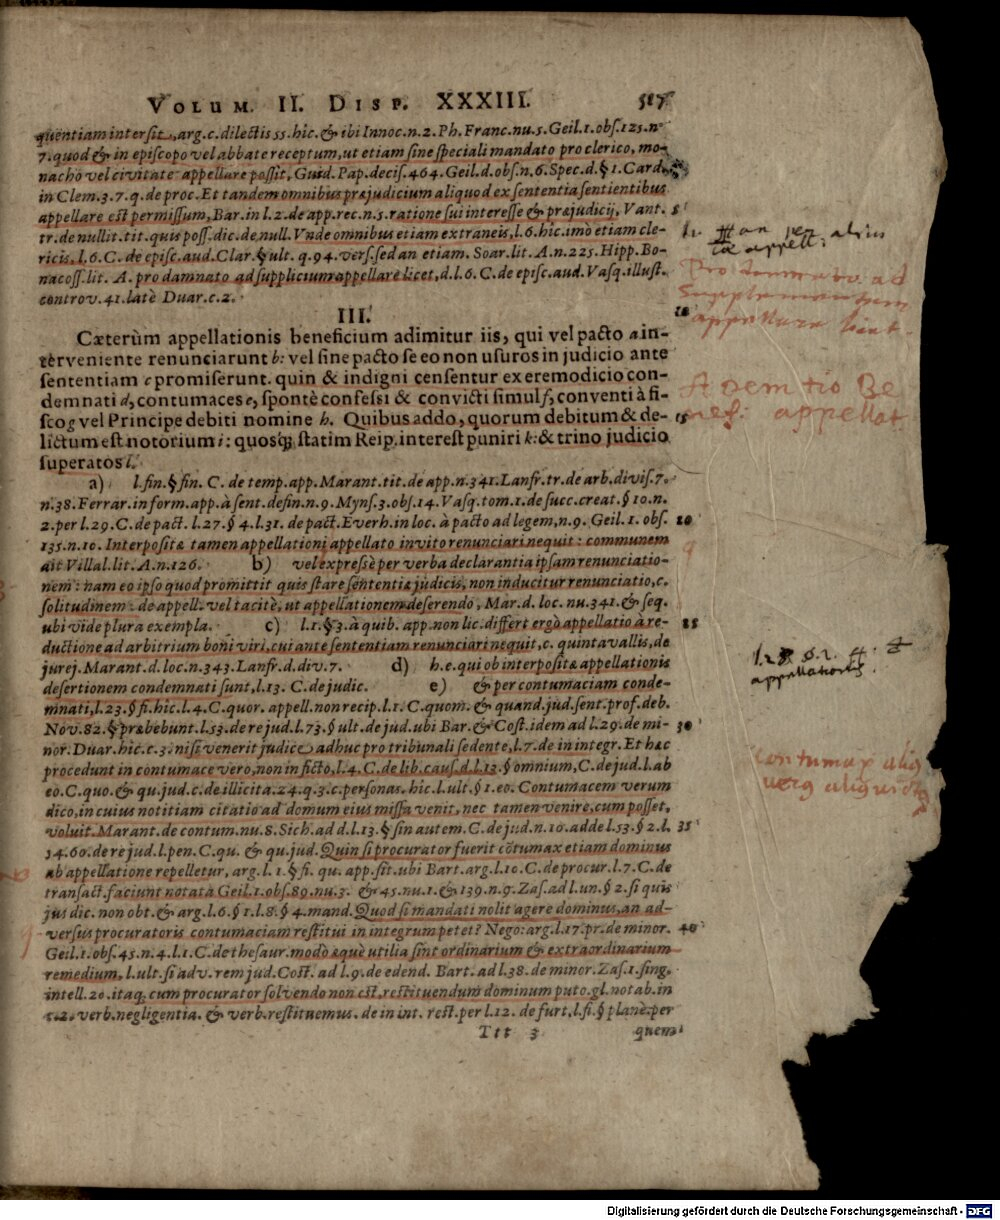 VOLUM. II. DISP. XXXIII. 517
quentiam intersit, arg. c. dilectis 55. hic. & ibi Innoc. n. 2. Ph. Franc. nu. 5. Geil. 1. obs. 125. n°
7. quod & in episcopo vel abbate receptum, ut etiam sine speciali mandato pro clerico, mo-
nacho vel civitate appellare possit, Guid. Pap. decis. 464. Geil. d. obs. n. 6. Spec. d. § 1. Card.
in Clem. 3. 7. q. de proc. Et tandem omnibus præjudicium aliquod ex sententia sentientibus
appellare est permissum, Bar. in l. 2. de app. rec. n. 5. ratione sui interesse & præjudicij, Vant. 5
tr. de nullit. tit. quis poss. dic. de null. Vnde omnibus etiam extraneis, l. 6. hic. imò etiam cle-
ricis, l. 6. C. de episc. aud. Clar. § ult. q. 94. vers. sed an etiam. Soar. lit. A. n. 225. Hipp. Bo-
nacoss. lit. A. pro damnato ad supplicium appellare licet, d. l. 6. C. de episc. aud. Vasq. illust.
controv. 41. latè Duar. c. 2.
an per
appell: alius
Pro damnato ad
appellare
III. 10
Cæterùm appellationis beneficium adimitur iis, qui vel pacto a in-
terveniente renunciarunt b: vel sine pacto se eo non usuros in judicio ante
sententiam c promiserunt. quin & indigni censentur ex eremodicio con-
demnati d, contumaces e, spontè confessi & convicti simul f, conventi à fi-
sco g vel Principe debiti nomine h. Quibus addo, quorum debitum & de- 15
lictum est notorium i: quosq; statim Reip. interest puniri k: & trino judicio
superatos l.
Ademtio Be
nef: appellat.
a) l. fin. § fin. C. de temp. app. Marant. tit. de app. n. 341. Lanfr. tr. de arb. divis. 7.
n. 38. Ferrar. in form. app. à sent. defin. n. 9. Myns. 3. obs. 14. Vasq. tom. 1. de succ. creat. § 10. n.
2. per l. 29. C. de pact. l. 27. § 4. l. 31. de pact. Everh. in loc. à pacto ad legem, n. 9. Geil. 1. obs. 20
135. n. 10. Interpositæ tamen appellationi appellato invito renunciari nequit: communem
ait Villal. lit. A. n. 126. b) vel expressè per verba declarantia ipsam renunciatio-
nem: nam eo ipso quod promittit quis stare sententiæ judicis, non inducitur renunciatio, c.
solitudinem: de appell: vel tacitè, ut appellationem deserendo, Mar. d. loc. nu. 341. & seq.
ubi vide plura exempla. c) l. 1. § 3. à quib. app. non lic. differt ergò appellatio à re- 25
ductione ad arbitrium boni viri, cui ante sententiam renunciari nequit, c. quintavallis, de
jurej. Marant. d. loc. n. 343. Lanfr. d. div. 7. d) h. e. qui ob interpositæ appellationis
desertionem condemnati sunt, l. 13. C. de judic. e) & per contumaciam conde-
mnati, l. 23. § fi. hic. l. 4. C. quor. appell. non recip. l. 1. C. quom. & quand. jud. sent. prof. deb.
Nov. 82. § præbebunt. l. 53. de re jud. l. 73. § ult. de jud. ubi Bar. & Cost. idem ad l. 29. de mi- 30
nor. Duar. hic. c. 3. nisi venerit judice adhuc pro tribunali sedente, l. 7. de in integr. Et hæc
procedunt in contumace vero, non in ficto, l. 4. C. de lib. caus. d. l. 13. § omnium, C. de jud. l. ab
eo. C. quo. & qu. jud. c. de illicita. 24. q. 3. c. personas. hic. l. ult. § 1. eo. Contumacem verum
dico, in cuius notitiam citatio ad domum eius missa venit, nec tamen venire, cum posset,
voluit. Marant. de contum. nu. 8. Sich. ad d. l. 13. § sin autem. C. de jud. n. 10. adde l. 53. § 2. l. 35
54. 60. de re jud. l. pen. C. qu. & qu. jud. Quin si procurator fuerit cõtumax etiam dominus
ab appellatione repelletur, arg. l. 1. § fi. qu. app. sit. ubi Bart. arg. l. 10. C. de procur. l. 7. C. de
transact. faciunt notata Geil. 1. obs. 89. nu. 3. & 45. nu. 1. & 139. n. 9. Zas. ad l. un. § 2. si quis
jus dic. non obt. & arg. l. 6. § 1. l. 8. § 4. mand. Quod si mandati nolit agere dominus, an ad-
versus procuratoris contumaciam restitui in integrum petet? Nego: arg. l. 17. pr. de minor. 40
Geil. 1. obs. 45. n. 4. l. 1. C. de thesaur. modò æquè utilia sint ordinarium & extraordinarium
remedium, l. ult. si adv. rem jud. Cost. ad l. 9. de edend. Bart. ad l. 38. de minor. Zas. 1. sing.
intell. 20. itaq; cum procurator solvendo non est, restituendum dominum puto. gl. notab. in
verb. negligentia. & verb. restituemus. de in int. rest. per l. 12. de furt, l. fi. § planè. per
appellationis
Contumax aliq
verq aliqui
Ttt 3 quem
Digitalisierung gefördert durch die Deutsche Forschungsgemeinschaft - DFG